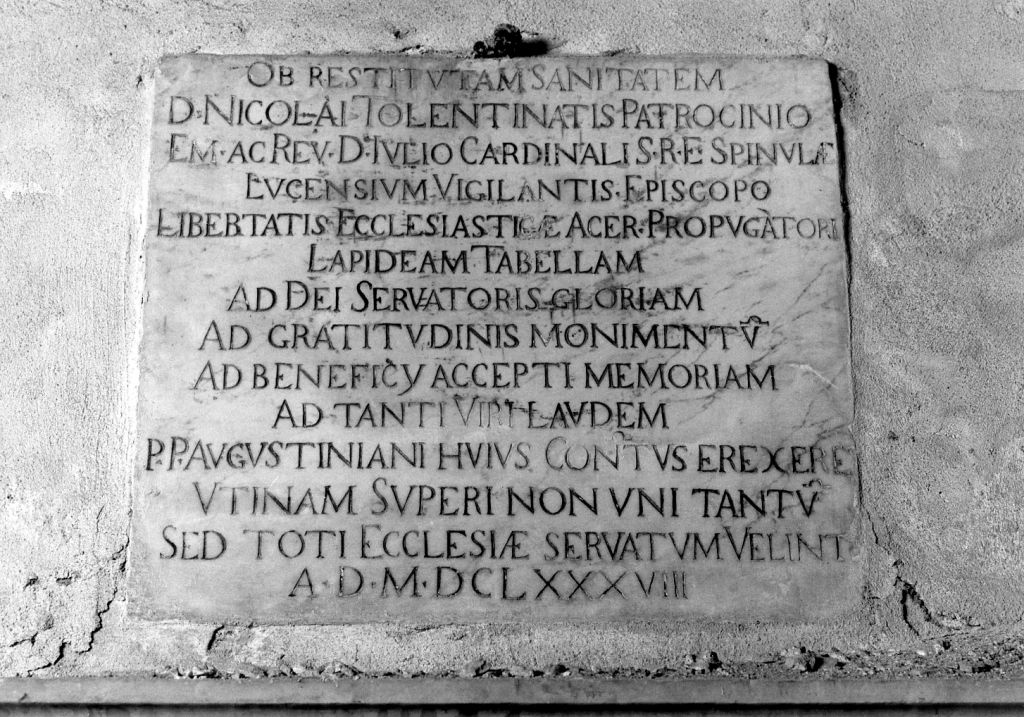 OB RESTITVTAM SANITATEM
D·NICOLAI TOLENTINATIS PATROCINIO
EM·AC REV·D·IVLIO CARDINALI S·R·E SPINVLÆ
LVCENSIVM·VIGILANTIS·EPISCOPO
LIBERTATIS·ECCLESIASTICÆ ACER·PROPVGATORI
LAPIDEAM TABELLAM
AD DEI SERVATORIS GLORIAM
AD GRATITVDINIS MONIMENTV̂
AD BENEFICY ACCEPTI MEMORIAM
AD TANTI VIRI LAVDEM
P.P.AVGVSTINIANI HVIVS CONTVS EREXERE
VTINAM SVPERI NON VNI TANTV̂
SED TOTI ECCLESIÆ SERVATVM VELINT
A·D·M·DCLXXXVIII